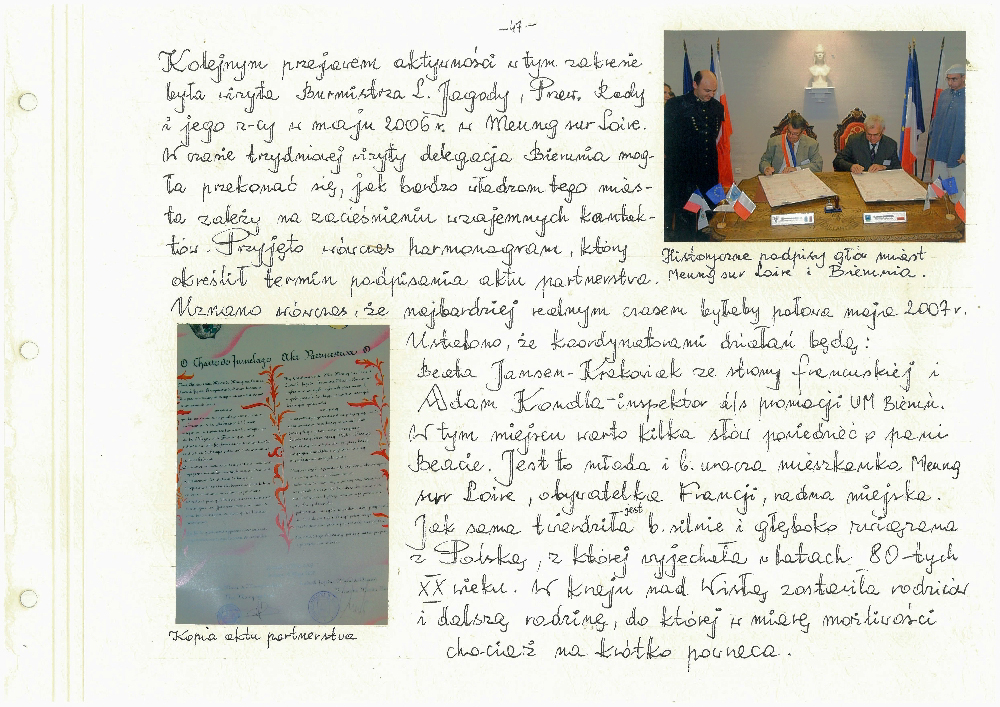 -47-
Kolejnym przejawem aktywności w tym zakresie
była wizyta Burmistrza L. Jagody, Przew. Rady
i jego z-cy w maju 2006 r. w Meung sur Loire.
W czasie trzydniowej wizyty delegacja Bierunia mog-
ła przekonać się, jak bardzo władzom tego mias-
ta zależy na zacieśnieniu wzajemnych kontak-
tów. Przyjęto wówczas harmonogram, który
określił termin podpisania aktu partnerstwa.
Historyczne podpisy głów miast
Meung sur Loire i Bierunia.
Uznano wówczas, że najbardziej realnym czasem byłaby połowa maja 2007 r.
Ustalono, że koordynatorami działań będą:
Beata Jansen-Krakowiak ze strony francuskiej i
Adam Kondla-inspektor d/s promocji UM Bieruń.
W tym miejscu warto kilka słów powiedzieć o pani
Beacie. Jest to młoda i b. urocza mieszkanka Meung
sur Loire, obywatelka Francji, radna miejska.
Jak sama twierdziła jest b. silnie i głęboko związana
z Polską, z której wyjechała w latach 80-tych
XX wieku. W kraju nad Wisłą zostawiła rodziców
i dalszą rodzinę, do której w miarę możliwości
chociaż na krótko powraca.
Akt Partnerstwa
Kopia aktu partnerstwa